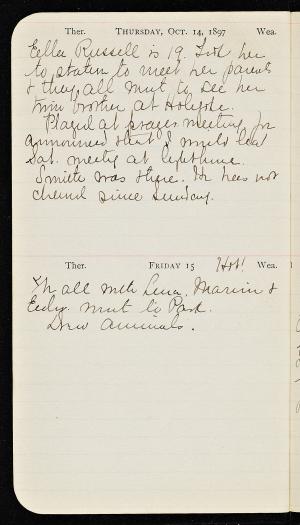 Ther. THURSDAY, OCT. 14, 1897 Wea.
Ella Russell is 19. Led her
to station to meet her parents
& they all went to see her
twin brother at
Played at prayer meeting for
announced that I would lead
Sat. meeting at
Smith was there. He has not
chewed since Sunday.
Ther. FRIDAY 15 Hot! Wea.
all with Lena. Marion &
went to Park.
Drew animals.